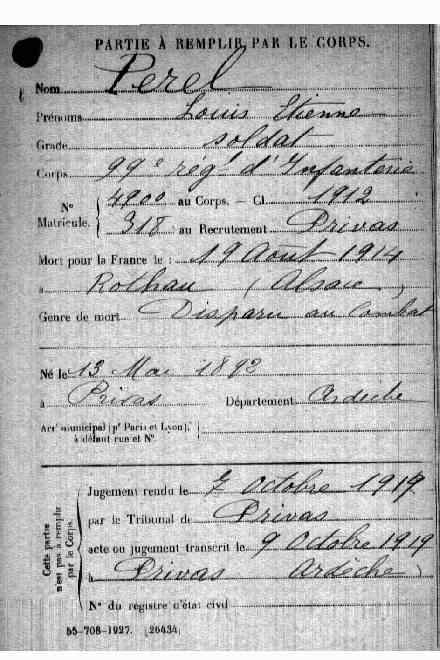 PARTIE À REMPLIR PAR LE CORPS.
Nom Perel
Prénoms Louis Etienne
Grade soldat
Corps 99e régt d'Infanterie
No Matricule. 4900 au Corps. — Cl. 1912
318 au Recrutement Privas
Mort pour la France le : 19 Août 1914
à Rothau (Alsace)
Genre de mort Disparu au combat
Né le 13 Mai 1892
à Privas Département Ardèche
Arrt municipal (pr Paris et Lyon), à défaut rue et No.
Cette partie n'est pas à remplir par le Corps.
Jugement rendu le 7 Octobre 1919
par le Tribunal de Privas
acte ou jugement transcrit le 9 Octobre 1919
à Privas Ardèche
No du registre d'état civil
55-708-1927. [26434]